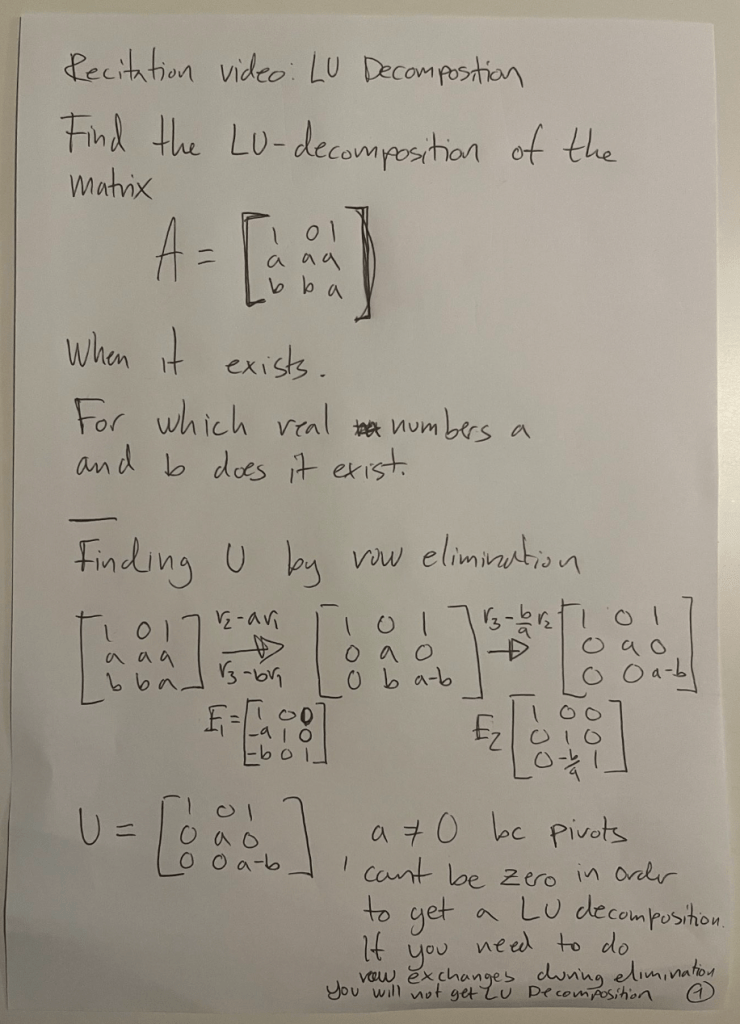 Recitation video: LU Decompostion
Find the LU-decomposition of the
matrix
A = [1 0 1
a a a
b b a]
When it exists.
For which real numbers a
and b does it exist.
Finding U by row elimination
[1 0 1; a a a; b b a] r2-ar1, r3-br1 → [1 0 1; 0 a 0; 0 b a-b] r3-b/a r2 → [1 0 1; 0 a 0; 0 0 a-b]
E1 = [1 0 0; -a 1 0; -b 0 1] E2 [1 0 0; 0 1 0; 0 -b/a 1]
U = [1 0 1; 0 a 0; 0 0 a-b], a ≠ 0 bc pivots
cant be zero in order
to get a LU decomposition.
If you need to do
row exchanges during elimination
you will not get LU Decomposition (1)